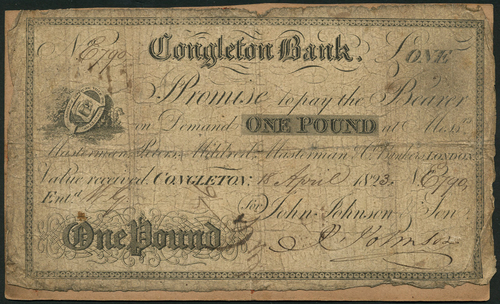 No E790 Congleton Bank. £ONE
I Promise to pay the Bearer
on Demand ONE POUND at Messrs.
Masterman, Peters, Mildred, Masterman & Co. Bankers, LONDON
Value received. CONGLETON; 18 April 1823. No E790
Entd.
For John Johnson & Son
One Pound J. Johnson